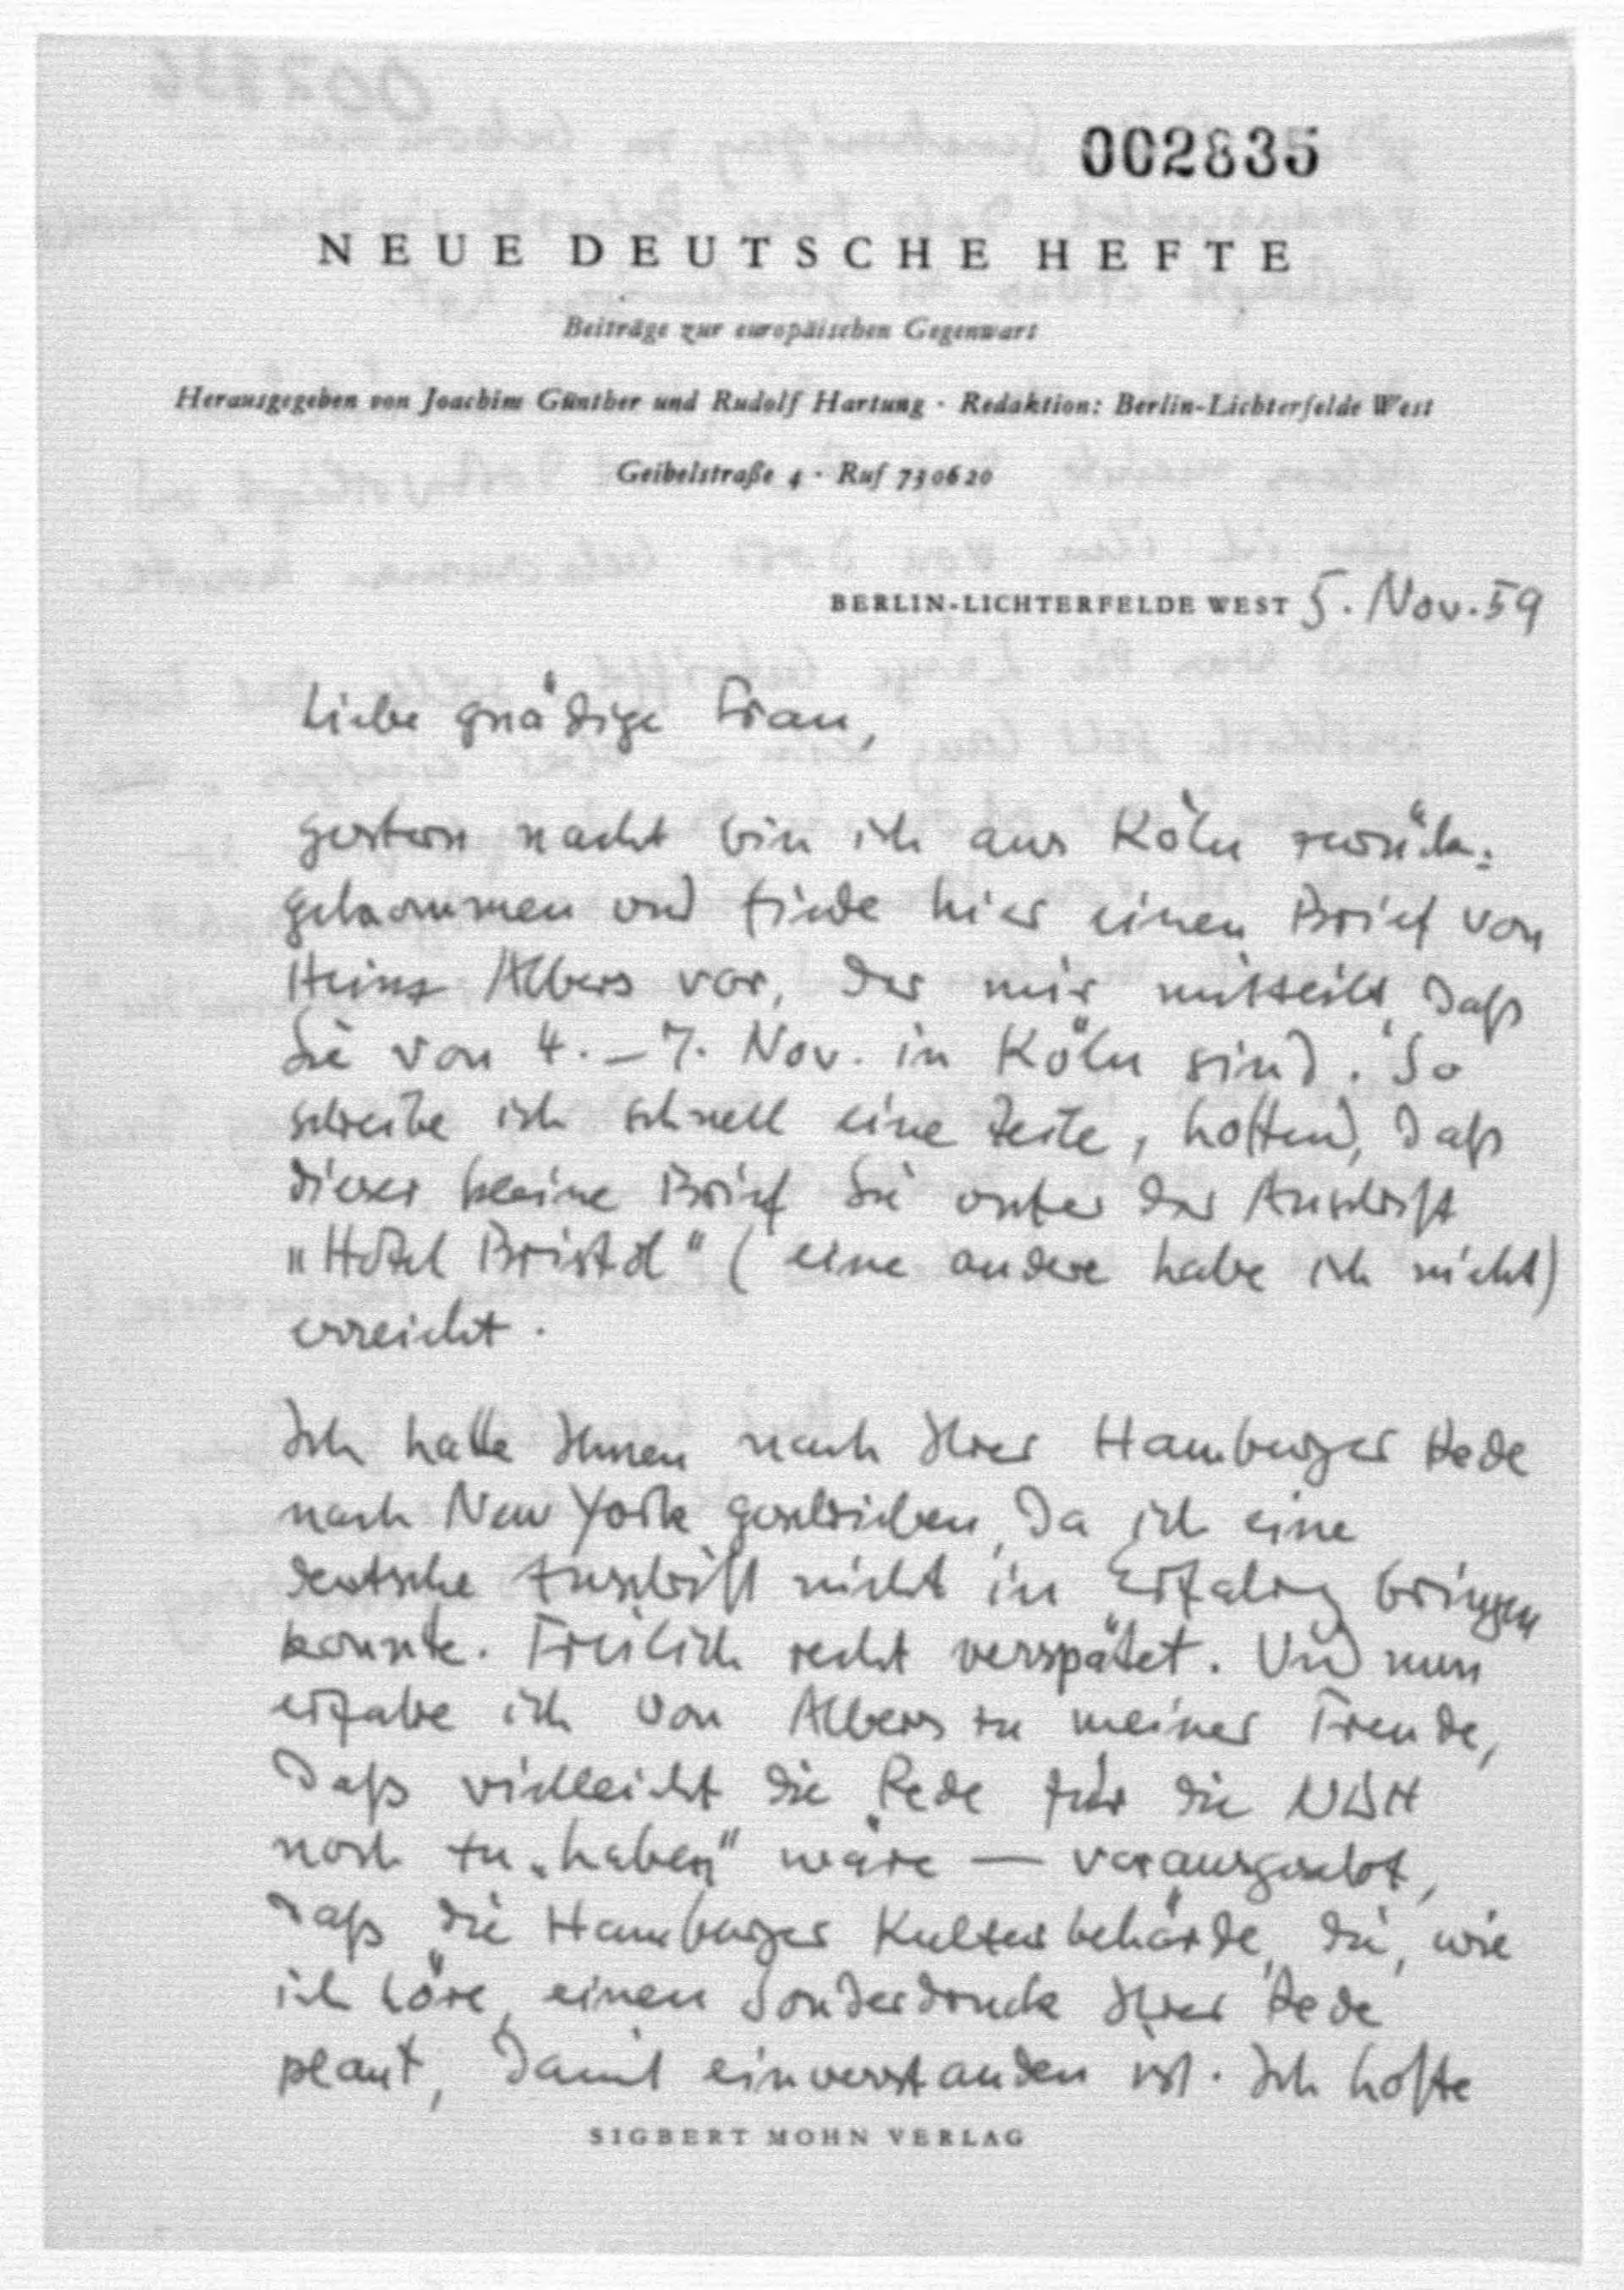 002835
NEUE DEUTSCHE HEFTE
Beiträge zur europäischen Gegenwart
Herausgegeben von Joachim Günther und Rudolf Hartung · Redaktion: Berlin-Lichterfelde West
Geibelstraße 4 · Ruf 730620
BERLIN-LICHTERFELDE WEST 5. Nov. 59
Liebe gnädige Frau,
gestern nacht bin ich aus Köln zurück-
gekommen und finde hier einen Brief von
Heinz Albers vor, der mir mitteilt, daß
Sie von 4. – 7. Nov. in Köln sind. So
schreibe ich schnell eine Zeile, hoffend, daß
dieser kleine Brief Sie unter der Anschrift
„Hotel Bristol" (eine andere habe ich nicht)
erreicht.
Ich hatte Ihnen nach Ihrer Hamburger Rede
nach New York geschrieben, da ich eine
deutsche Anschrift nicht in Erfahrg bringen
konnte. Freilich recht verspätet. Und nun
erfahre ich von Albers zu meiner Freude,
daß vielleicht die Rede für die NDH
noch zu „haben" wäre — vorausgesetzt,
daß die Hamburger Kulturbehörde, die, wie
ich höre, einen Sonderdruck Ihrer Rede
plant, damit einverstanden ist. Ich hoffe
SIGBERT MOHN VERLAG